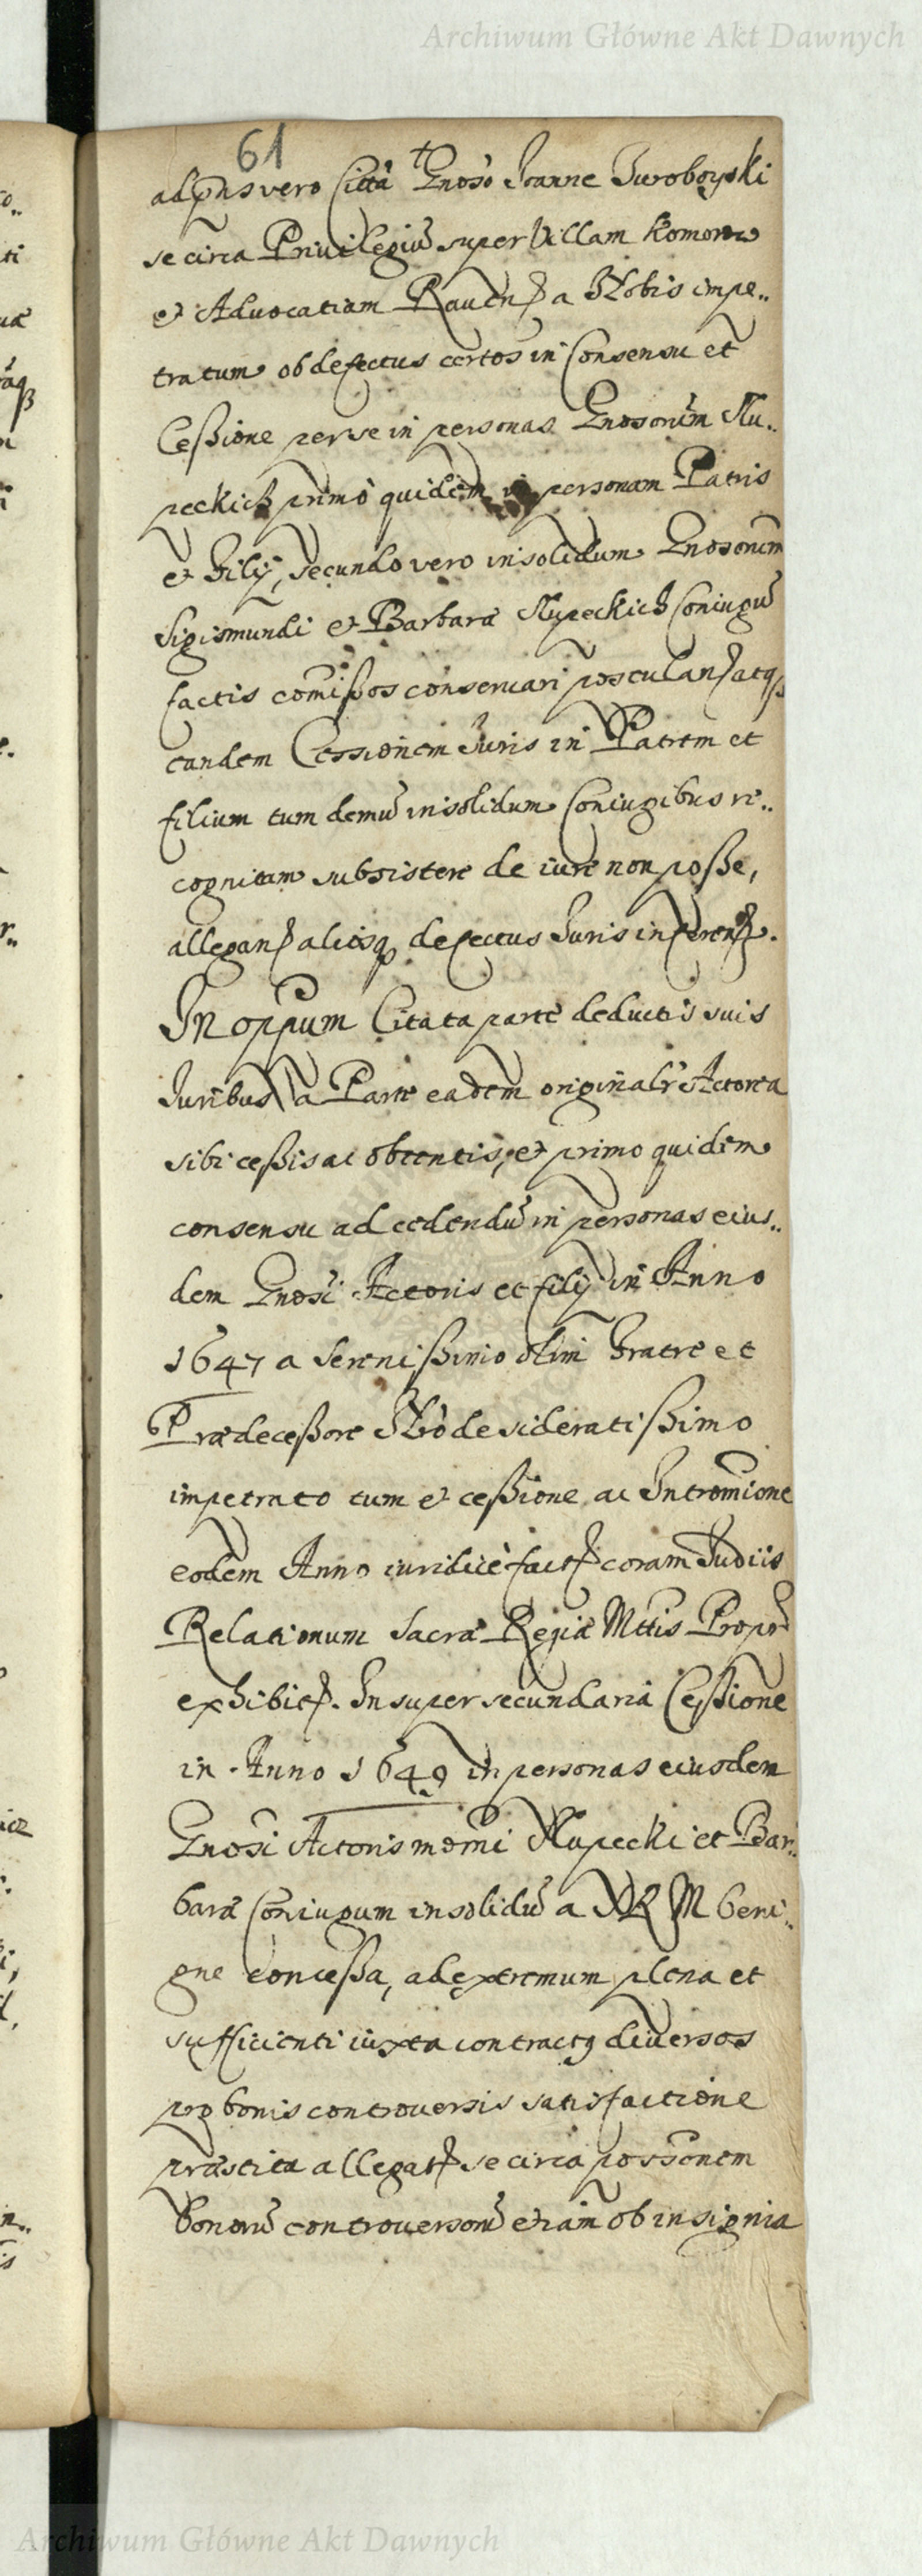 Archiwum Główne Akt Dawnych
61
ad pns vero Citta Gnoso Joanne Turoboyski
se circa Privilegiū super Villam Komorow
et Advocatiam Raven a Nobis impe..
tratum ob defectus certos in Consensu et
Ceßione per se in personas Gnosorum Slu..
peckich primo quidem in personam Patris
et Filij, secundo vero insolidum Gnosorum
Sigismundi et Barbaræ Slupeckich Coniugū
factis comißos conservari postulan atq
eandem Cessionem Juris in Patrem et
filium tum demū insolidum Coniugibus re..
cognitam subsistere de iure non poße,
allegan aliosq defectus Juris inferen.
IN oppum Citata parte deductis suis
Juribus a Parte eadem originalr Actorea
sibi ceßis ac obtentis, et primo quidem
consensu ad cedendū in personas eius..
dem Gnosi Actoris et filij in Anno
1647 a Serenißimo olim Fratre et
Prædeceßore Nro desideratißimo
impetrato tum et ceßione ac Intromione
eodem Anno iuridice fact coram Judiis
Relationum Sacræ Regiæ Mttis Propr
exhibit. Insuper secundaria Ceßione
in Anno 1649 in personas eiusdem
Gnosi Actoris moderni Slupecki et Bar..
baræ Coniugum insolidū a NRM beni..
gne conceßa, ad extremum plena et
sufficienti iuxta contractus diversos
pro bonis controversis satisfactione
præstita allegat se circa possonem
bonorū controversorū etiam ob insignia
Archiwum Główne Akt Dawnych